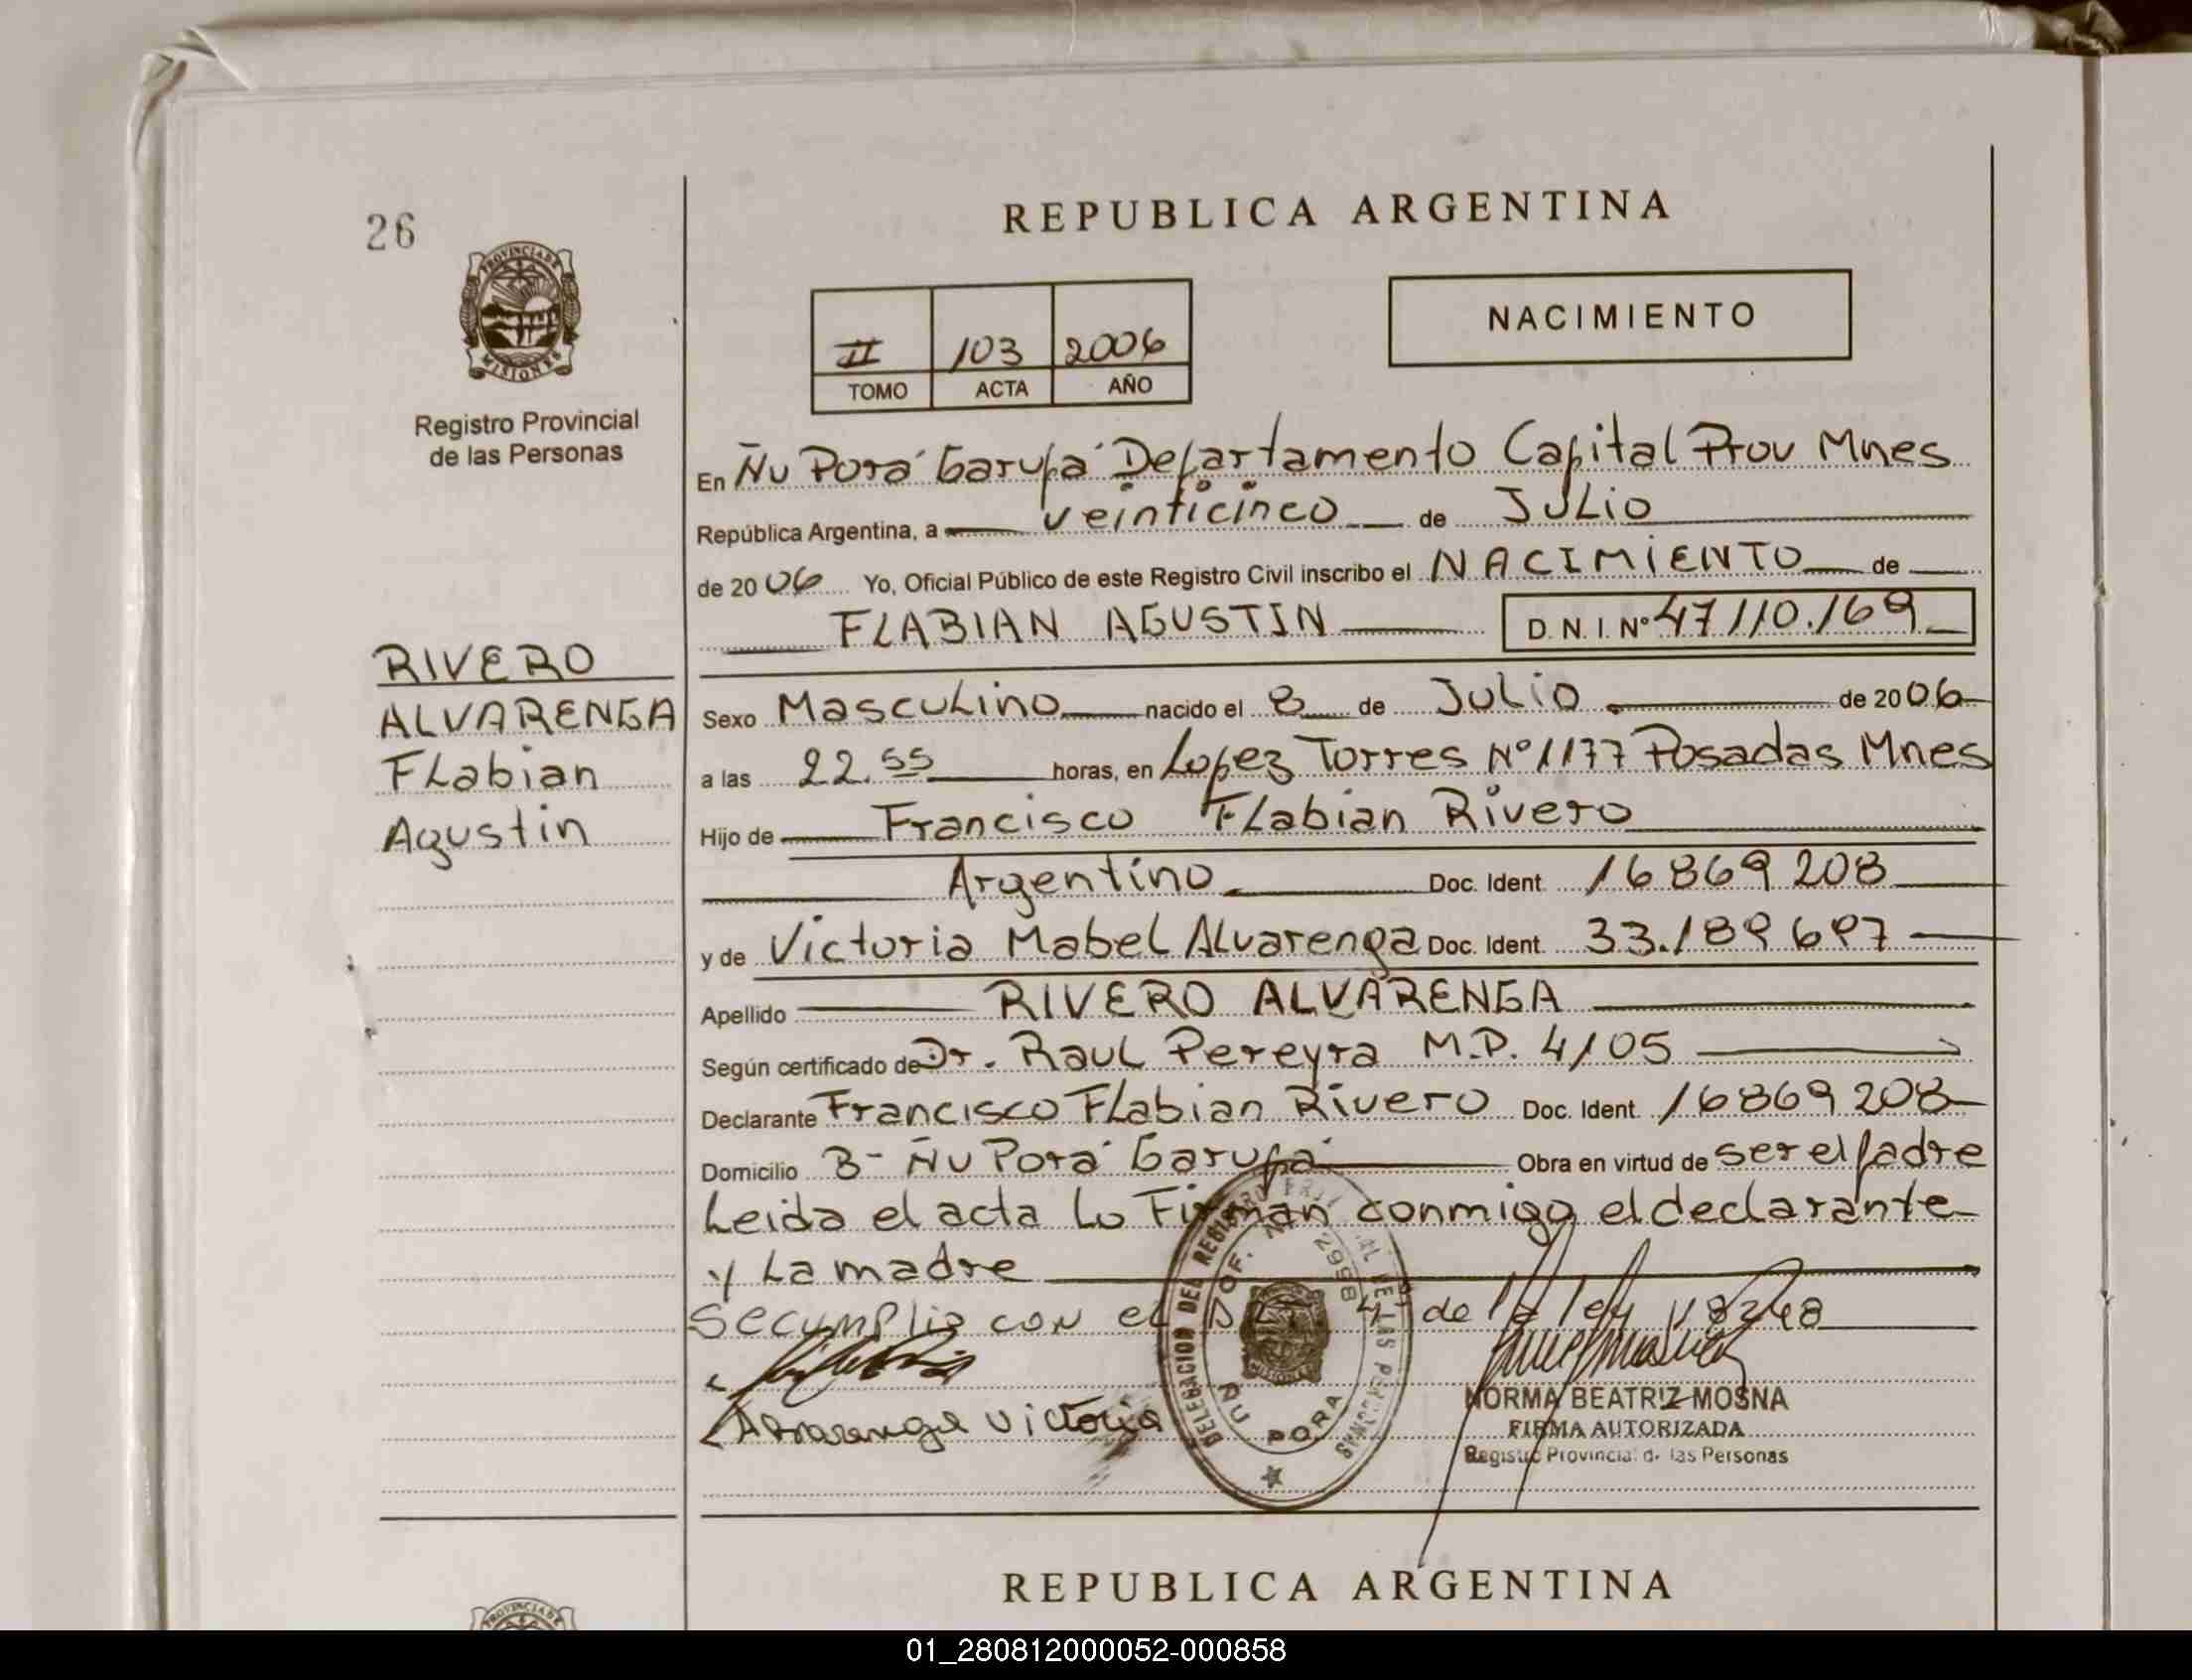 26
PROVINCIA DE
MISIONES
Registro Provincial
de las Personas
RIVERO
ALVARENGA
FLabian
Agustin
REPUBLICA ARGENTINA
II 103 2006
TOMO ACTA AÑO
NACIMIENTO
En Ñu Porá Garupá Departamento Capital Prov Mnes
República Argentina, a veinticinco de JULio
de 2006 Yo, Oficial Público de este Registro Civil inscribo el NACIMIENTO de
FLABIAN AGUSTIN D.N.I. Nº 47110.169
Sexo MascuLino nacido el 8 de JuLio de 2006
a las 22.55 horas, en Lopez Torres Nº 1177 Posadas Mnes
Hijo de Francisco FLabian Rivero
Argentino Doc. Ident. 16869208
y de Victoria MabeL ALvarenga Doc. Ident. 33.189697
Apellido RIVERO ALVARENGA
Según certificado de Dr. RauL Pereyra M.P. 4105
Declarante Francisco FLabian Rivero Doc. Ident. 16869208
Domicilio B- Ñu Porá Garupá Obra en virtud de ser el padre
Leida el acta Lo Firman conmigo el declarante
y La madre
Se cumplio con el de la ley 18248
Alvarenga Victoria
DELEGACION DEL REGISTRO DE LAS PERSONAS
OF. 2958
ÑU PORA
NORMA BEATRIZ MOSNA
FIRMA AUTORIZADA
Registro Provincial de las Personas
REPUBLICA ARGENTINA
PROVINCIA DE
01_280812000052-000858